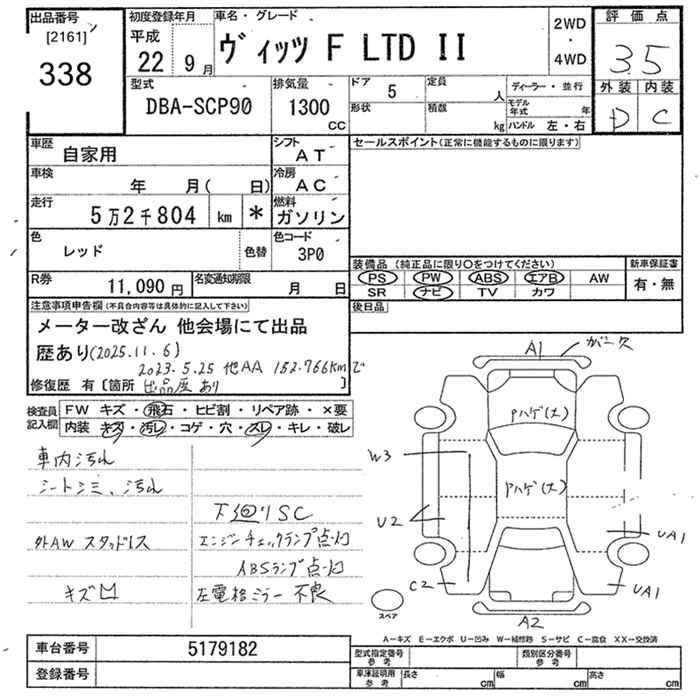 出品番号
[2161]
338
初度登録年月
平成
22年 9月
車名・グレード
ヴィッツ F LTD II
2WD
・
4WD
評価点
3.5
外装 内装
D C
型式
DBA-SCP90
排気量
1300
CC
ドア 5
定員 人
形状
積数 kg
ディーラー・並行
モデル年式 年
ハンドル 左・右
車歴
自家用
シフト
AT
セールスポイント(正常に機能するものに限ります)
車検
年 月( 日)
冷房
AC
走行
5万2千804 km *
燃料
ガソリン
色
レッド
色替
色コード
3P0
装備品(純正品に限り○をつけてください)
PS PW ABS エアB AW
SR ナビ TV カワ
新車保証書
有・無
R券
11,090円
名変通知期限
月 日
後日品
注意事項申告欄(不具合内容等は具体的に記入して下さい)
メーター改ざん 他会場にて出品
歴あり(2025.11.6)
2023.5.25 他AA 152.766kmで
修復歴 有[箇所 出品歴あり ]
検査員記入欄
FW キズ・飛石・ヒビ割・リペア跡・×要
内装 キズ・汚レ・コゲ・穴・スレ・キレ・破レ
車内汚れ
シートシミ、汚れ
下回りSC
外AW スタッドレス
エンジンチェックランプ点灯
ABSランプ点灯
キズ凹
左電格ミラー不良
A1
ガーズ欠
Pハゲ(大)
Pハゲ(大)
W3
U2
UA1
C2
UA1
A2
スペア
A-キズ E-エクボ U-凹み W-補修跡 S-サビ C-腐食 XX-交換済
車台番号
5179182
登録番号
型式指定番号
参考
類別区分番号
参考
車庫証明用
参考
長さ cm
幅 cm
高さ cm